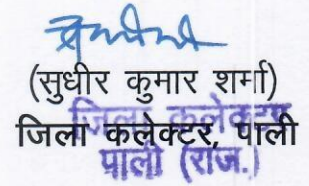 (सुधीर कुमार शर्मा)
जिला कलेक्टर, पाली
जिला कलेक्टर
पाली (राज.)